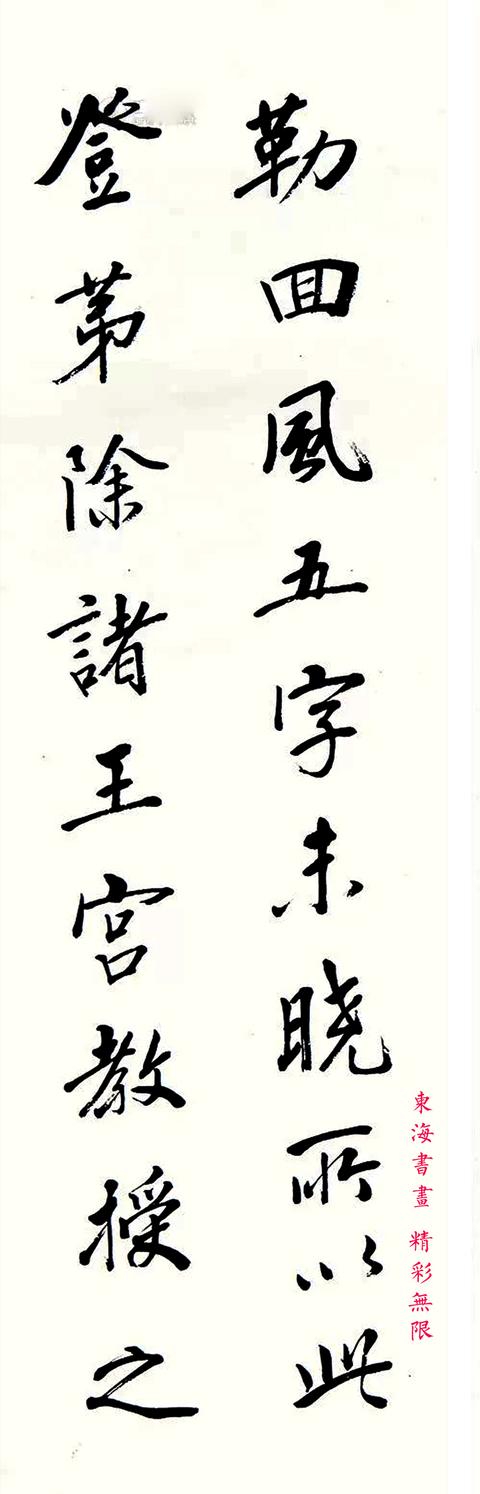 勒回風五字未曉所以此
登第除諸王宮教授之
東海書畫 精彩無限